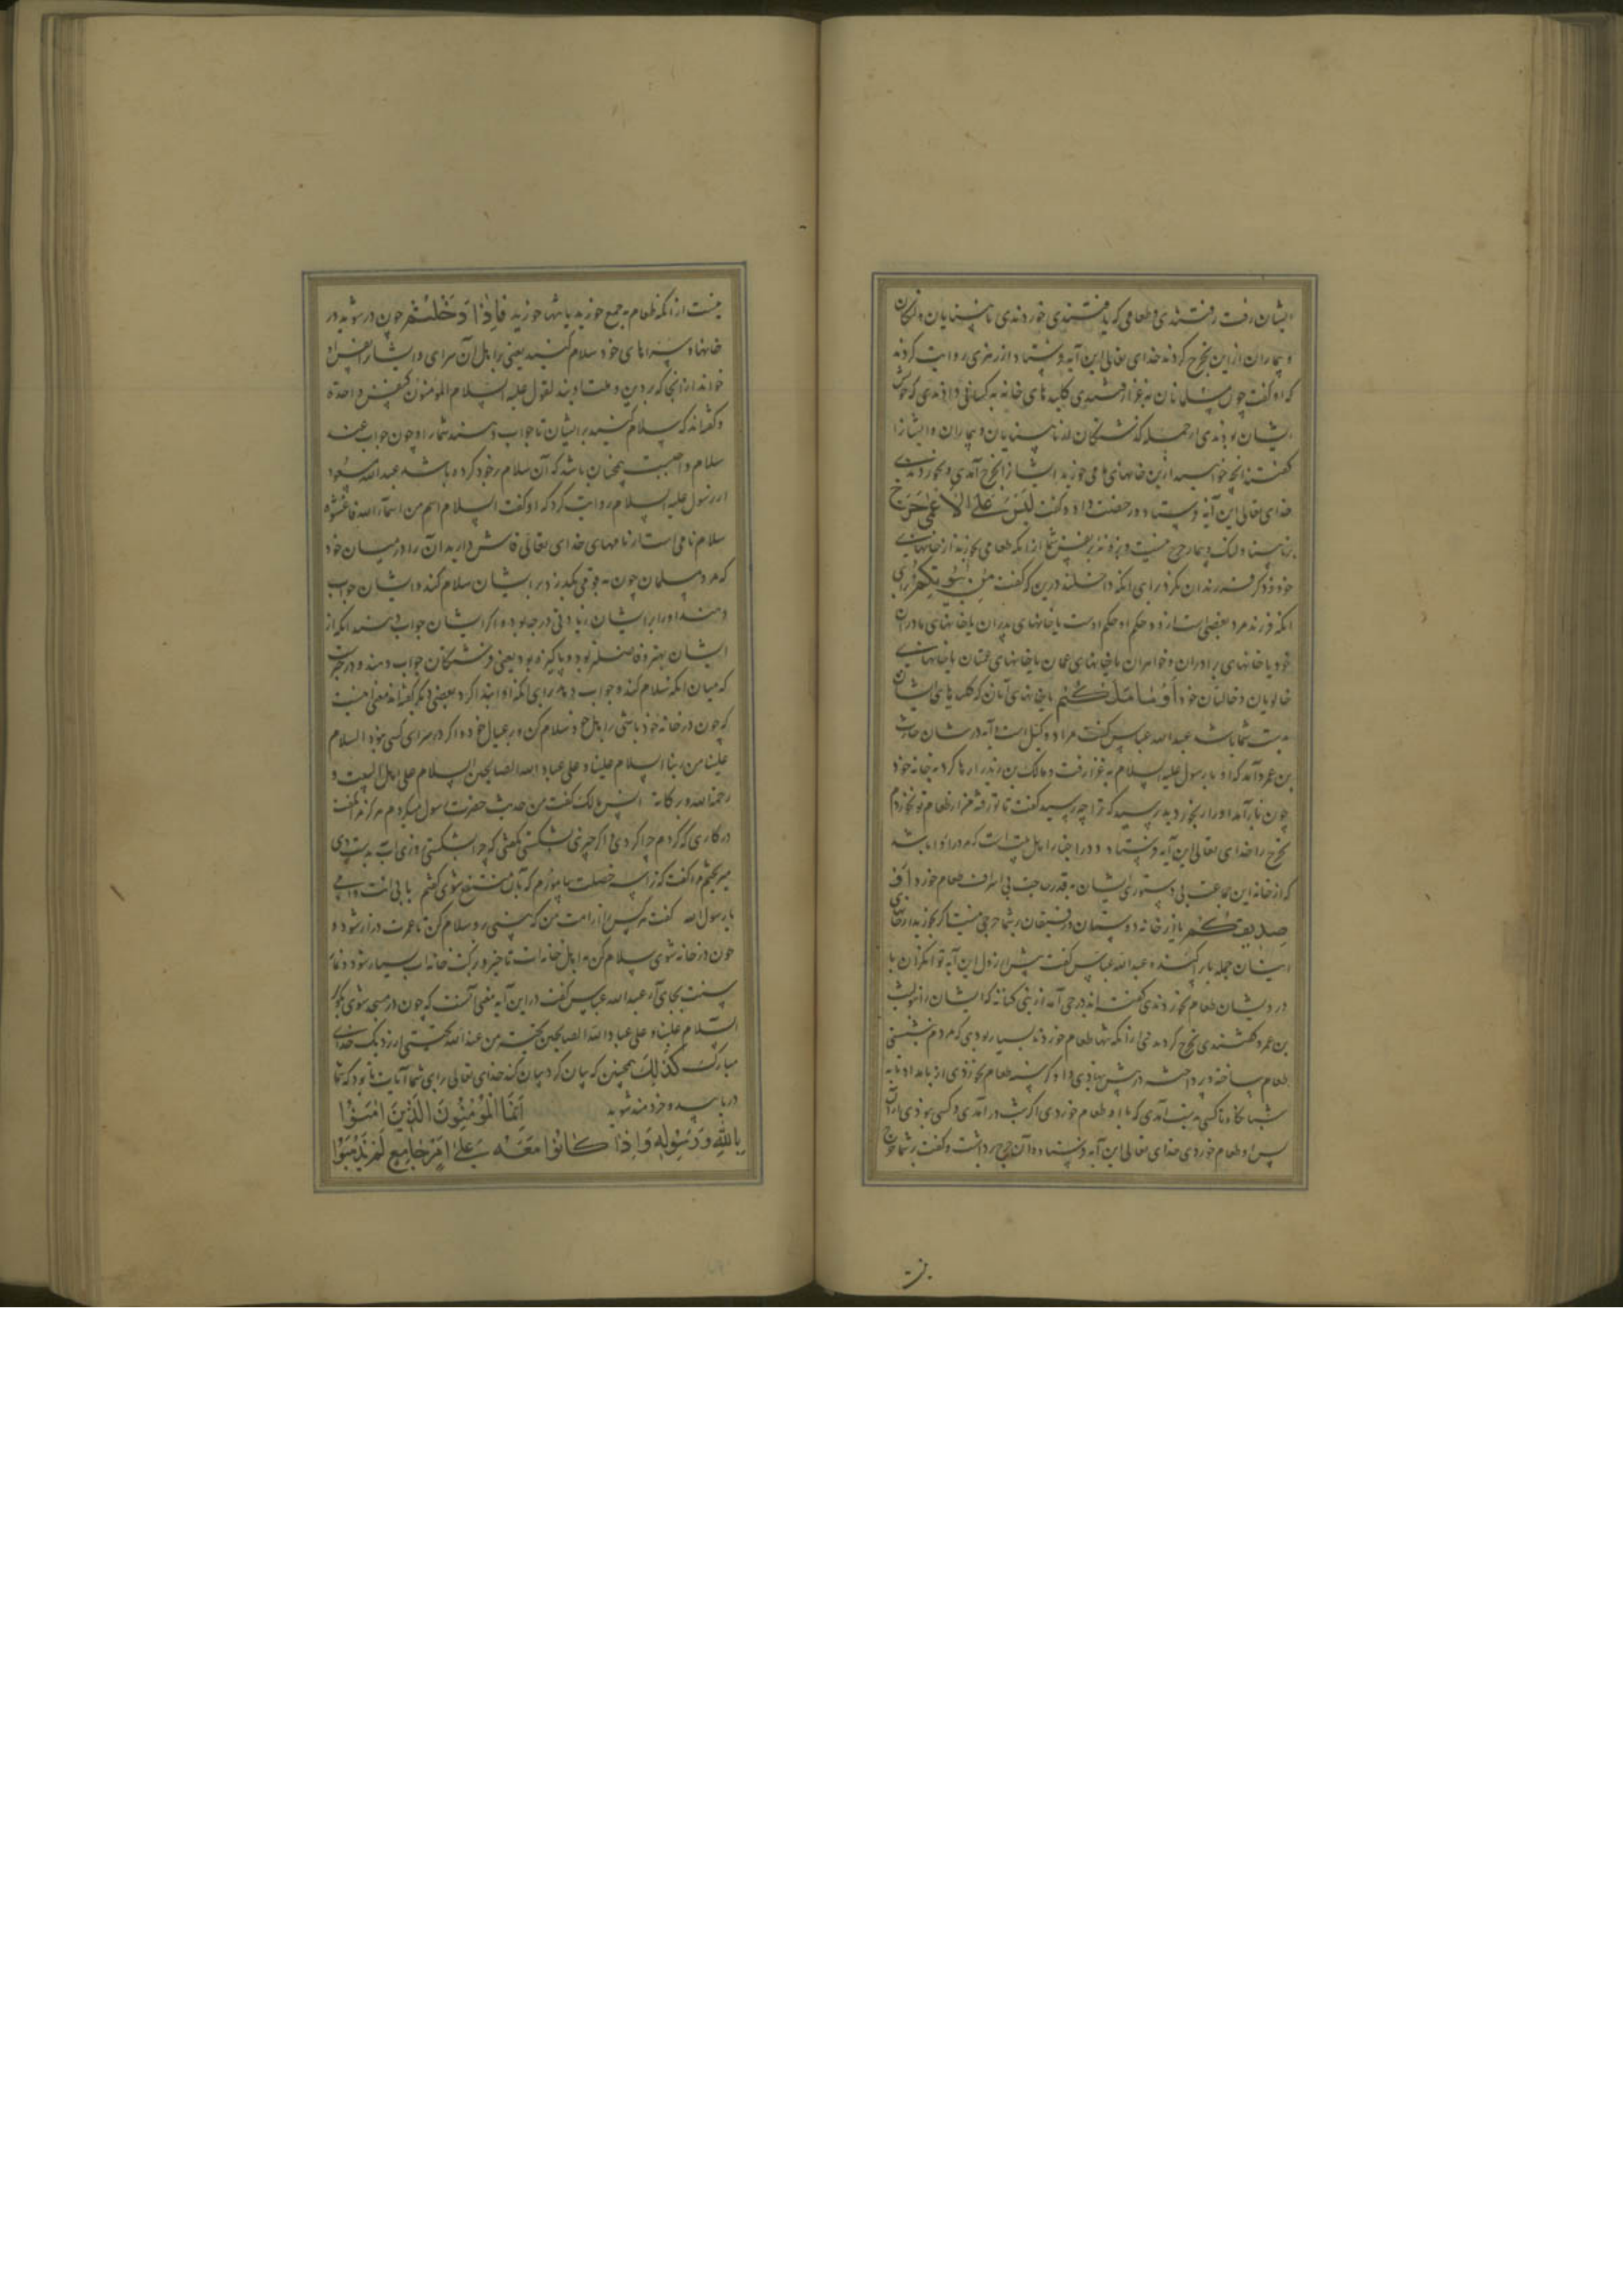 ایشان رفت رفتندی و طعامی که یافتندی خوردندی نابینایان و لنگان
و بیماران ازین تحرج کردند خدای تعالی این آیه فرستاد از زهری روایت کردند
که او گفت چون مسلمانان به غزا رفتندی کلیدهای خانه به کسانی دادندی که خویش
ایشان بودندی از جمله که نابینایان و بیماران و ایشانرا
گفتند آنچه خواهید ازین خانهای ما می خورید ایشانرا تحرج آمدی و نخوردندی
خدای تعالی این آیه فرستاد و رخصت داد و گفت لَيْسَ عَلَى الْأَعْمَى حَرَجٌ
بر نابینا و لنگ و بیمار حرج نیست و نیز بر نفس شما از آنکه طعامی بخورند از خانهای
خود و ذکر فرزندان نکرد برای آنکه داخلند درین که گفت مِنْ بُيُوتِكُمْ برای
آنکه فرزند مرد بعضی است ازو و حکم او حکم اوست یا خانهای پدران یا خانهای مادران
خود یا خانهای برادران و خواهران یا خانهای عمان یا خانهای عمتان یا خانهای
خالویان و خالتان خود أَوْ مَا مَلَكْتُمْ یا خانهای آنان که کلیدهای ایشان
به دست شما باشد عبدالله عباس گفت مراد وکیل است و آیه در شان حارث
بن عمرو آمد که او با رسول علیه السلام به غزا رفت و مالک بن زید را رها کرد به خانه خود
چون باز آمد او را رنجور دید پرسید که ترا چه رسید گفت تا تو رفته من از طعام تو نخوردم
تحرج را خدای تعالی این آیه فرستاد و در اخبار اهل بیت است که مرد را روا باشد
که از خانه این جماعت بی دستوری ایشان به قدر حاجت بی اسراف طعام خورد أَوْ
صَدِيقِكُمْ یا از خانه دوستان و رفیقان بر شما حرجی نیست اگر بخورید از خانهای
ایشان جمله باز عبدالله عباس گفت پیش از نزول این آیه توانگران با
درویشان طعام نخوردندی گفتند اند در حی آمد از بنی کنانه که ایشان را بنولیث
بن عمرو گفتندی تحرج کردندی از آنکه تنها طعام خوردند بسیار بودی که مردم بنشستی
طعام ساخته و پرداخته در پیش نهادی و او گرسنه طعام نخوردی از بامداد تا به
شبانگاه تا کسی به دست آمدی که با او طعام خوردی اگر شب در آمدی و کسی نبودی از آن
پس او طعام خوردی خدای تعالی این آیه فرستاد و آن حرج برداشت و گفت بر شما حرج
نیست از آنکه طعام به جمع خورید یا تنها خورید فَإِذَا دَخَلْتُمْ چون در شوید در
خانها و سراهای خود سلام کنید یعنی بر اهل آن سرای و ایشانرا نفس او
خواند از آنجا که بر دین و ملت اویند لقول علیه السلام المومنون کنفس واحدة
و گفته اند که سلام کنید بر ایشان تا جواب دهند شما را و چون جواب
سلام واجبست همچنان باشد که آن سلام بر خود کرده باشد عبدالله مسعود
از رسول علیه السلام روایت کرد که او گفت السلام اسم من اسمآء الله فافشوه
سلام نامی است از نامهای خدای تعالی فاش دارید آن را در میان خود
که مرد مسلمان چون به قومی بگذرد و بر ایشان سلام کند و ایشان جواب
دهند او را بر ایشان زیادتی درجه بود و اگر ایشان جواب ندهند آنکه از
ایشان بهتر و فاضلتر بود و پاکیزه بود یعنی فرشتگان جواب دهند و در خبرست
که میان آنکه سلام کند و جواب دهد برای آنکه او ابتدا کرد بعضی دیگر گفته اند معنی اینست
که چون در خانه خود باشی بر اهل خود سلام کن و بر عیال خود و اگر در سرای کسی نبود السلام
علینا من ربنا السلام علینا و علی عباد الله الصالحین السلام علی اهل البیت و
رحمة الله و برکاته انس مالک گفت من خدمت حضرت رسول میکردم هرگز مرا نگفت
در کاری که کردم چرا کردی و اگر چیزی بشکستی نگفتی که چرا بشکستی روزی آب به دست وی
میریختم مرا گفت که ترا سه خصلت بیاموزم که بآن منتفع شوی گفتم بابی انت و امی
یا رسول الله گفت هر کس را از امت من که بینی برو سلام کن تا عمرت دراز شود و
چون در خانه شوی سلام کن بر اهل خانه ات تا خیر و برکت خانه ات بسیار شود و نماز
سنت بجای آر عبدالله عباس گفت در این آیه معنی آنست که چون در مسجد شوی بگو
السلام علینا و علی عباد الله الصالحین تحیة من عند الله تحیتی از نزدیک خدای
مبارک كَذَلِكَ همچنین که بیان کرد بیان کند خدای تعالی برای شما آیات تا بود که شما
دریابید و خردمند شوید إِنَّمَا الْمُؤْمِنُونَ الَّذِينَ آمَنُوا
بِاللَّهِ وَرَسُولِهِ وَإِذَا كَانُوا مَعَهُ عَلَى أَمْرٍ جَامِعٍ لَمْ يَذْهَبُوا